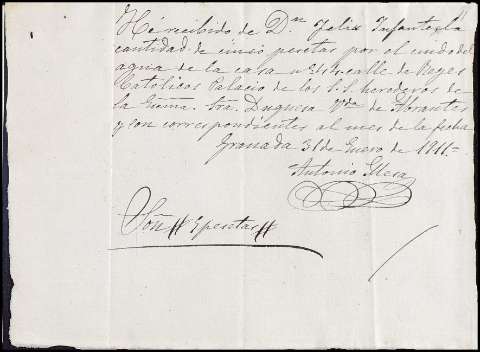 He recibido de Dn Felix Infante la
cantidad de cinco pesetas por el cuido del
agua de la casa nº 34 calle de Reyes
Católicos Palacio de los S.S. herederos de
la Exma. Sra. Duquesa Vda de Abrantes
y son correspondientes al mes de la fecha
Granada 31 de Enero de 1911=
Antonio
Son # 5 pesetas #